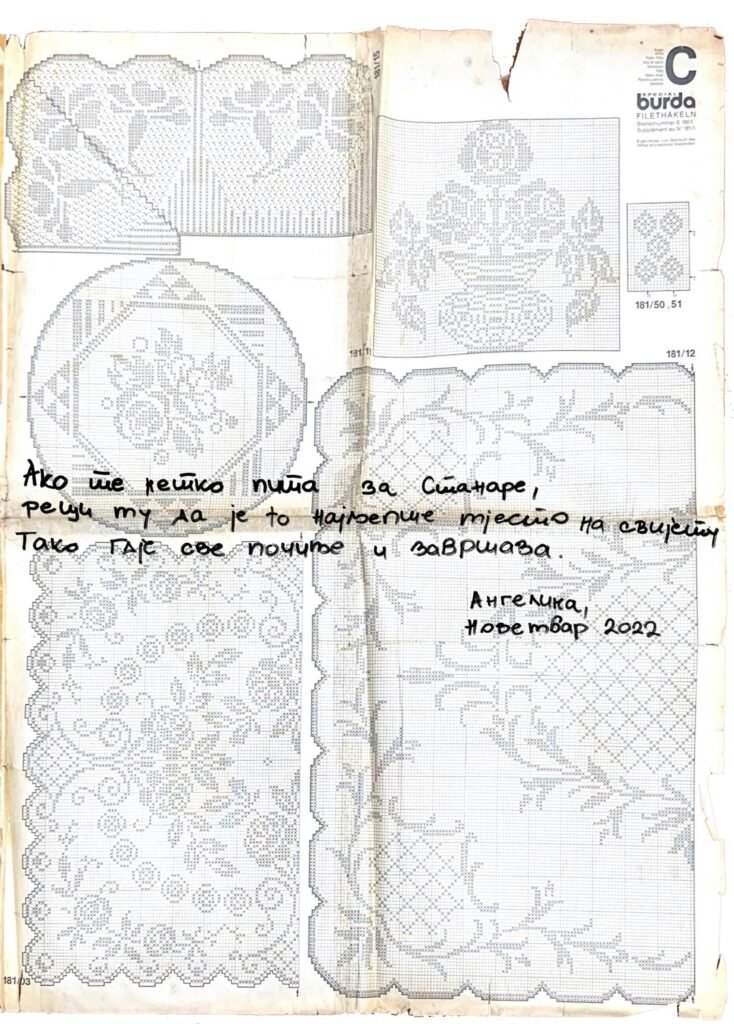 181/15
C
SPECIAL
burda
FILETHÄKELN
181/50, 51
181/11
181/12
Ако те нетко пита за Станаре,
реци му да је то најљепше мјесто на свијету
Тако гдје све почиње и завршава.
Ангелика,
Новембар 2022
181/03